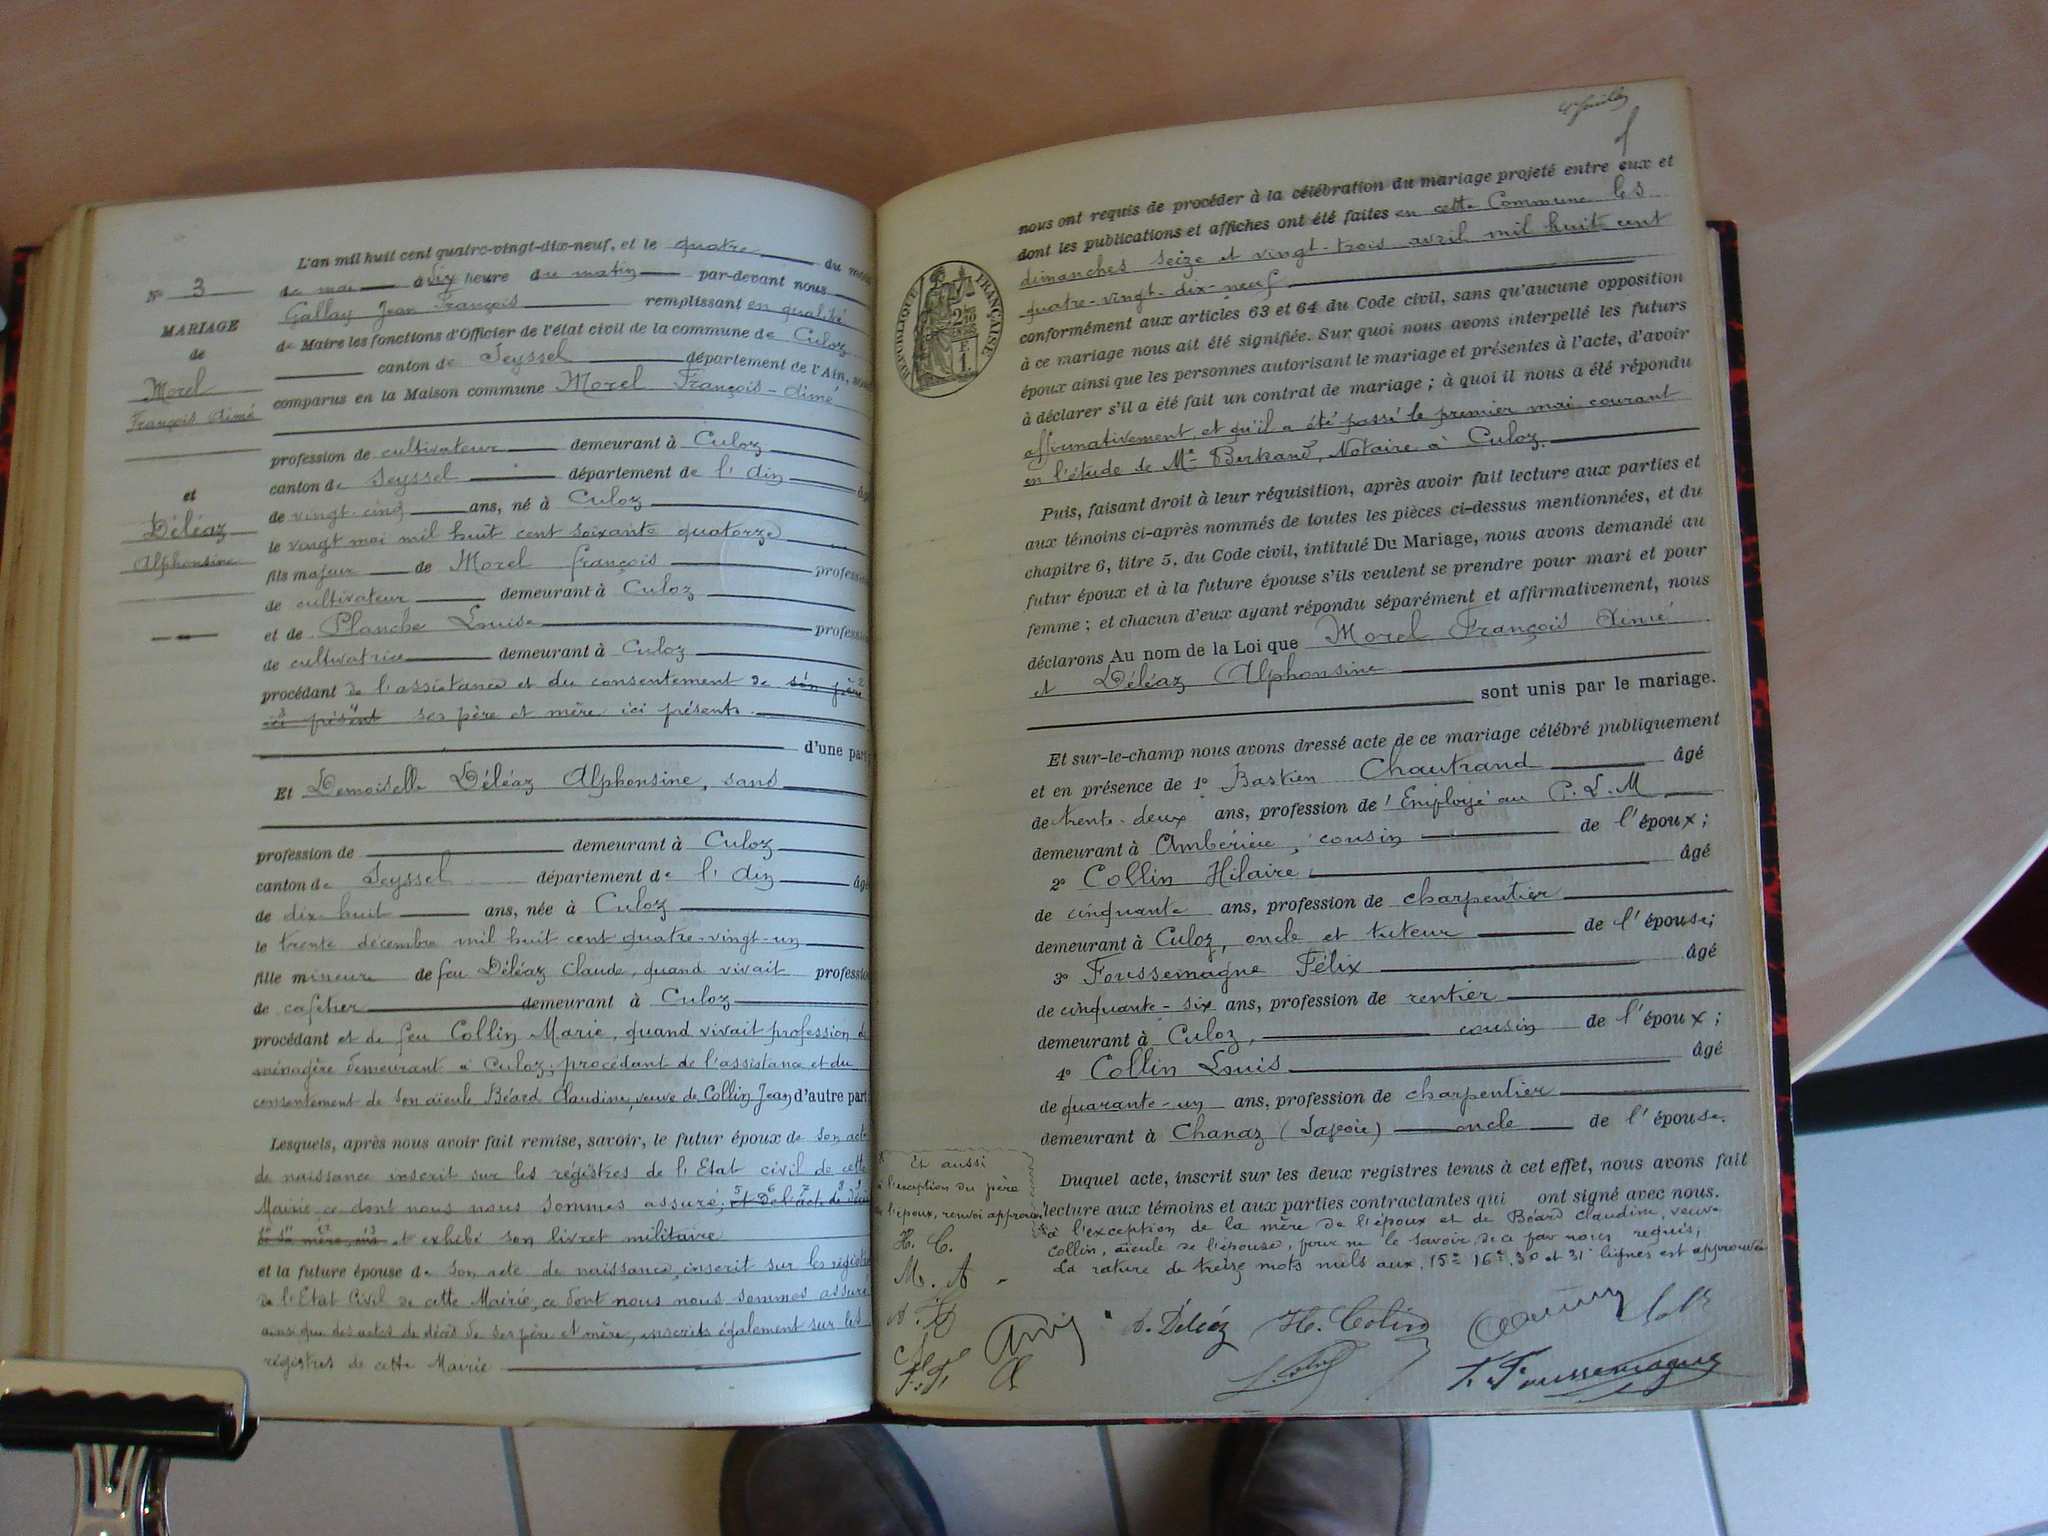 N° 3
MARIAGE
de
Morel
François Aimé
et
Déléaz
Alphonsine
L'an mil huit cent quatre-vingt-dix-neuf, et le quatre du mois
de mai à dix heure du matin par-devant nous
Gallay Jean François remplissant en qualité
de Maire les fonctions d'Officier de l'état civil de la commune de Culoz
canton de Seyssel département de l'Ain, sont
comparus en la Maison commune Morel François-Aimé
profession de cultivateur demeurant à Culoz
canton de Seyssel département de l'Ain âgé
de vingt-cinq ans, né à Culoz
le vingt mai mil huit cent soixante quatorze
fils majeur de Morel françois profession
de cultivateur demeurant à Culoz
et de Planche Louise profession
de cultivatrice demeurant à Culoz
procédant de l'assistance et du consentement de son père
ici présent ses père et mère ici présents.
d'une part
Et Demoiselle Déléaz Alphonsine, sans
profession de demeurant à Culoz
canton de Seyssel département de l'Ain âgé
de dix-huit ans, née à Culoz
le trente décembre mil huit cent quatre-vingt-un
fille mineure de feu Déléaz Claude, quand vivait profession
de cafetier demeurant à Culoz
procédant et de feu Collin Marie, quand vivait profession de
ménagère demeurant à Culoz; procédant de l'assistance et du
consentement de son aïeule Béard Claudine, veuve de Collin Jean d'autre part
Lesquels, après nous avoir fait remise, savoir, le futur époux de son acte
de naissance inscrit sur les régistres de l'Etat civil de cette
Mairie ce dont nous nous sommes assuré, et de l'acte de décès
de sa mère, et exhibé son livret militaire
et la future épouse de son acte de naissance, inscrit sur les régistres
de l'Etat Civil de cette Mairie, ce dont nous nous sommes assuré
ainsi que des actes de décès de ses père et mère, inscrits également sur les
régistres de cette Mairie
RÉPUBLIQUE FRANÇAISE
nous ont requis de procéder à la célébration du mariage projeté entre eux et
dont les publications et affiches ont été faites en cette Commune les
dimanches seize et vingt-trois avril mil huit cent
quatre-vingt-dix-neuf
conformément aux articles 63 et 64 du Code civil, sans qu'aucune opposition
à ce mariage nous ait été signifiée. Sur quoi nous avons interpellé les futurs
époux ainsi que les personnes autorisant le mariage et présentes à l'acte, d'avoir
à déclarer s'il a été fait un contrat de mariage; à quoi il nous a été répondu
affirmativement, et qu'il a été passé le premier mai courant
en l'étude de Me Bertrand, Notaire à Culoz.
Puis, faisant droit à leur réquisition, après avoir fait lecture aux parties et
aux témoins ci-après nommés de toutes les pièces ci-dessus mentionnées, et du
chapitre 6, titre 5, du Code civil, intitulé Du Mariage, nous avons demandé au
futur époux et à la future épouse s'ils veulent se prendre pour mari et pour
femme; et chacun d'eux ayant répondu séparément et affirmativement, nous
déclarons Au nom de la Loi que Morel François Aimé
et Déléaz Alphonsine
sont unis par le mariage.
Et sur-le-champ nous avons dressé acte de ce mariage célébré publiquement
et en présence de 1° Bastien Chautrand âgé
de trente-deux ans, profession de l'Employé au P.L.M
demeurant à Ambérieu, cousin de l'époux;
2° Collin Hilaire âgé
de cinquante ans, profession de charpentier
demeurant à Culoz, oncle et tuteur de l'épouse;
3° Foussemagne Félix âgé
de cinquante-six ans, profession de rentier
demeurant à Culoz, cousin de l'époux;
4° Collin Louis âgé
de quarante-un ans, profession de charpentier
demeurant à Chanaz (Savoie) oncle de l'épouse.
Duquel acte, inscrit sur les deux registres tenus à cet effet, nous avons fait
lecture aux témoins et aux parties contractantes qui ont signé avec nous.
à l'exception de la mère de l'époux et de Béard Claudine, veuve
Collin, aïeule de l'épouse, pour ne le savoir de ce par nous requis,
La rature de treize mots nuls aux 15e 16e 30 et 31e lignes est approuvée
Et aussi
à l'exception du père
de l'époux, renvoi approuvé
H. C.
M. A
A. D
F. F.
A. Déléaz H. Colin
F. Foussemagne